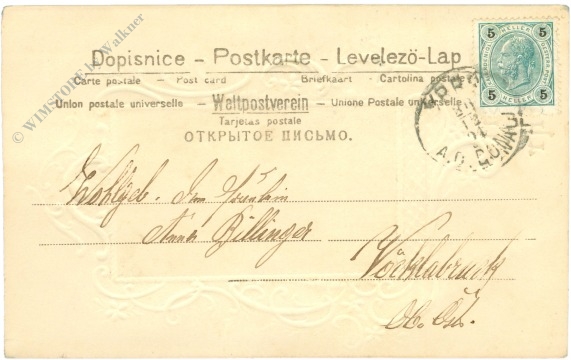 © WIMSTORE L. Walkner
Dopisnice – Postkarte – Levelező-Lap
Carte postale – Post card Briefkaart – Cartolina postale
Union postale universelle – Weltpostverein – Unione Postale universelle
Tarjetas postale
ОТКРЫТОЕ ПИСЬМО.
5 5
HELLER HELLER
5 5
A.D. DONAU
Wohlgeb. Fräulein
Anna Billinger
Vöcklabruck
Ob. Öst.